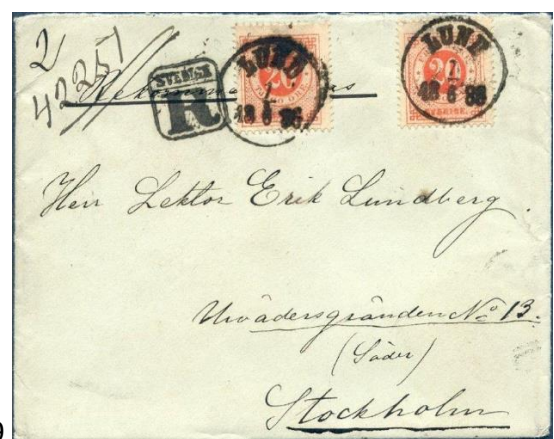 2
42251
Rekommenderas
SVERIGE
R
LUND
1
18 6 86
20
LUND
1
18 6 86
20
SVERIGE.
Herr Lektor Erik Lundberg.
Urvädersgränden No 13.
(Söder)
Stockholm
9